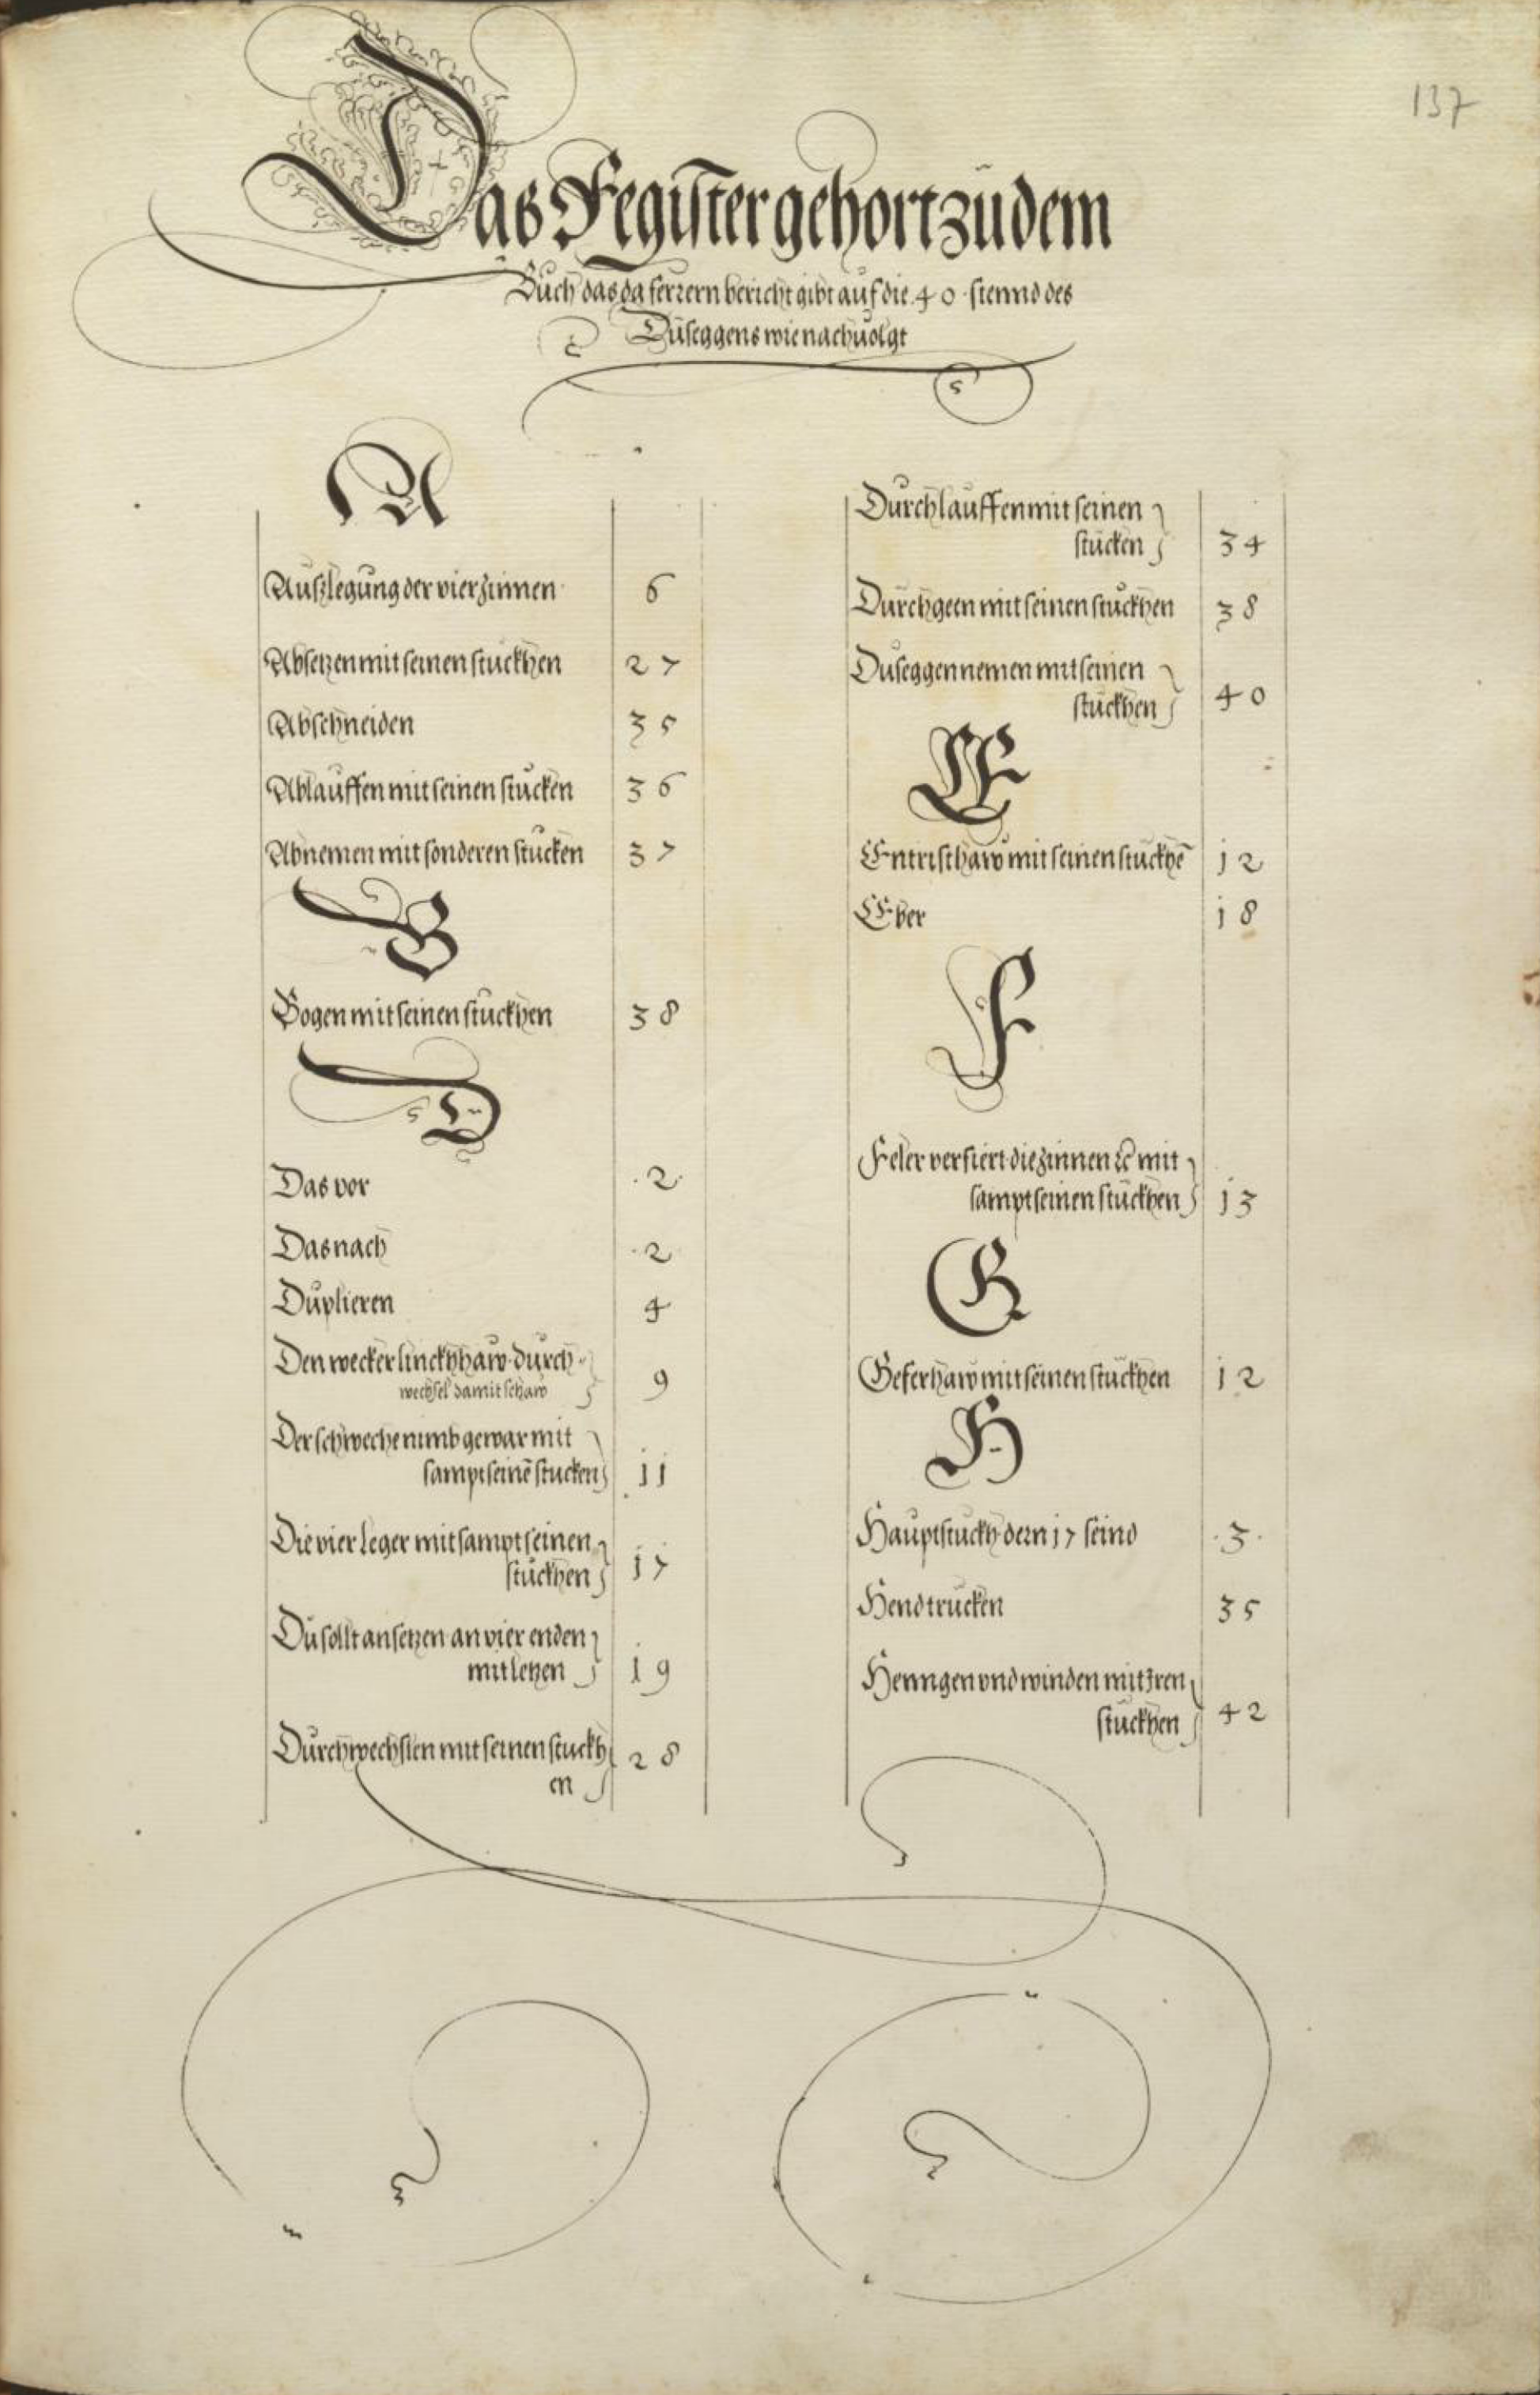 137
Das Register gehort zu dem
Buch das da ferrern bericht gibt auf die 40 stennd des
Duseggens wie nachuolgt
A
Auslegung der vier zinnen 6
Absetzen mit seinen stuckhen 27
Abschneiden 35
Ablauffen mit seinen stucken 36
Abnemen mit sonderen stucken 37
B
Bogen mit seinen stuckhen 38
D
Das vor 2
Das nach 2
Duplieren 4
Den wecker linckhhaw durch
wechsel damit schaw 9
Der schweche nimb gewar mit
sampt seinē stucken 11
Die vier Leger mit sampt seinen
stuckhen 17
Du sollt ansetzen an vier enden
mit letzen 19
Durchwechslen mit seinen stuckh
en 28
Durchlauffen mit seinen
stucken 34
Durchgeen mit seinen stuckhen 38
Duseggen nemen mit seinen
stuckhen 40
E
Entristhaw mit seinen stuckhē 12
Eber 18
F
Feler verfiert die zinnen ꝛc mit
sampt seinen stuckhen 13
G
Geferhaw mit seinen stuckhen 12
H
Hauptstuckh dern 17 seind 3
Hendtrucken 35
Henngen vnd winden mit Iren
stuckhen 42